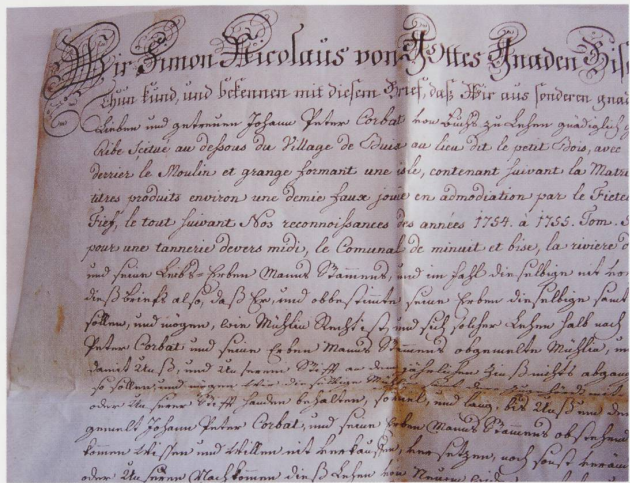 Wir Simon Nicolaus von Gottes Gnaden Bisc
Thun kund, und bekennen mit diesem Brief, daß Wir aus sonderen gnad
Lieben und getreuen Johann Peter Corbat von zu Lehen gnädiglich
Ribe Scitué au dessous du Village de au lieu dit le petit Bois, avec
derrier le Moulin et grange formant une isle, contenant suivant la Matri
titres produits environ une demie faux joüie en admodiation par le
Fief, le tout suivant Nos reconnoissances des années 1754. à 1755. Tom.
pour une tannerie devers midi, le Comunal de minuit et bise, la riviere
und seine Leibs-Erben Manns Stammens, und im fahl dieselbige nit
dieß briefs also, daß Er, und obbestimte seine Erben dieselbige samt
sollen, und mögen, wie Mühlin Recht ist, und sich solcher Lehen halb nach
Peter Corbat und seine Erben Manns Stammens obgemelte Mühlin,
damit Unß, und Unserem Stifft an dem jährlichen Zinß nichts abgang
so sollen und mögen
oder Unserer Stifft handen behalten, so viel, und lang, biß Unß
gemelt Johann Peter Corbat, und seine Erben Manns Stammens obstehend
ohne Wissen und Willen nit verkaufen, versetzen, noch sonst
oder Unseren Nachkommen dieß Lehen von Neuem